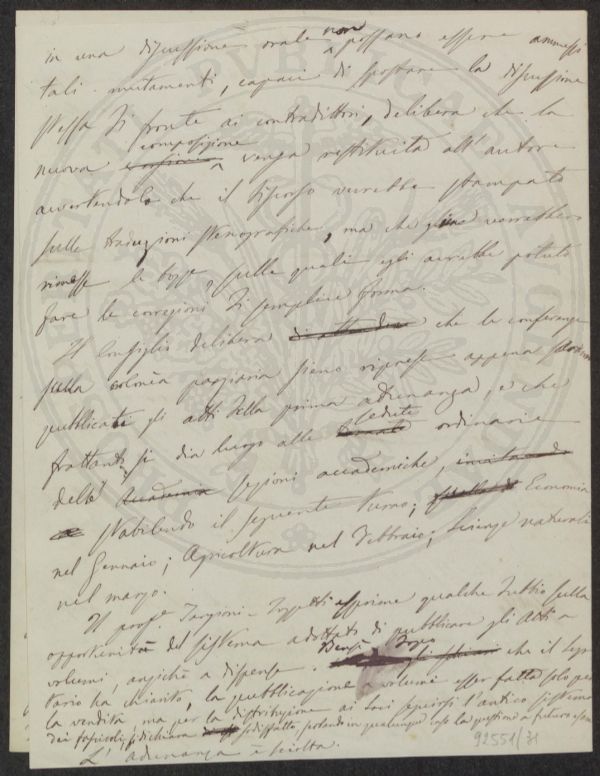 in una discussione orale non possano essere ammessi
tali mutamenti, capaci di spostare la discussione
stessa di fronte ai contradittori, delibera che la
nuova composizione venga restituita all'autore
avvertendolo che il discorso verrebbe stampato
sulle traduzioni stenografiche, ma che gliene verrebbero
rimesse le bozze, sulle quali egli avrebbe potuto
fare le correzioni di semplice forma.
Il Consiglio delibera che le conferenze
sulla colonia parziaria sieno riprese appena saranno
pubblicati gli atti della prima adunanza, e che
frattanto si dia luogo alle sedute ordinarie
delle sezioni accademiche,
stabilendo il seguente turno; Economia
nel Gennaio; Agricoltura nel Febbraio; Scienze naturali
nel marzo.
Il prof. Targioni-Tozzetti esprime qualche dubbio sulla
opportunità del sistema adottato di pubblicare gli Atti a
volumi, anziché a dispense. Dopo che il Segre
tario ha chiarito, la pubblicazione a volumi esser fatta solo per
la vendita, ma per la distribuzione ai soci seguirsi l'antico sistema
dei fascicoli, si dichiara sodisfatto, restando in qualunque caso la questione a futuro esame
L'adunanza è sciolta.
92551/31